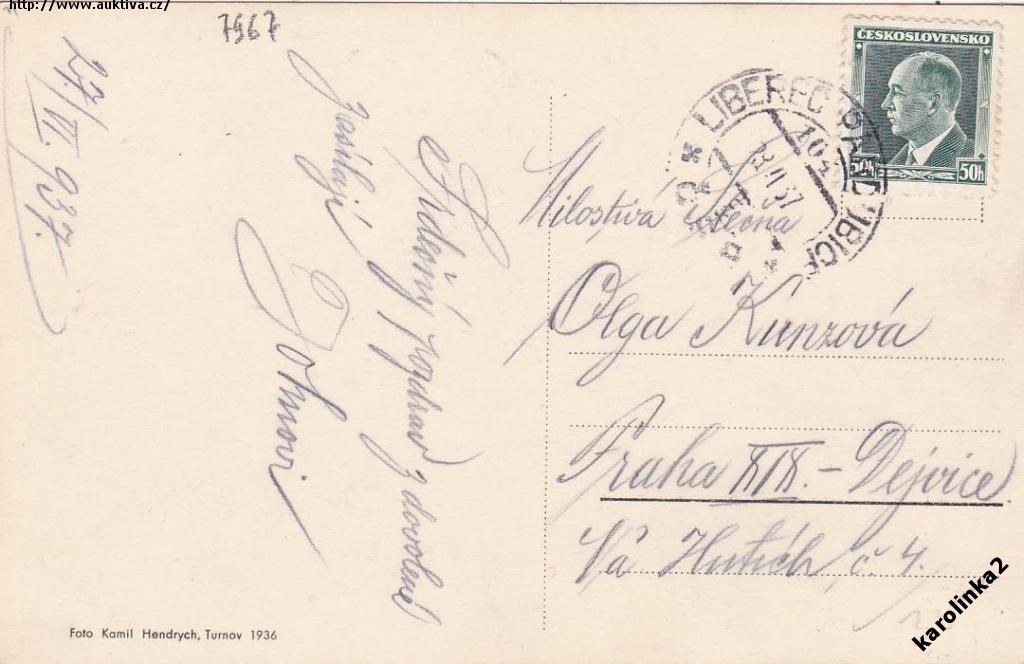 http://www.auktiva.cz/
7967
27./VI. 937.
Srdečný pozdrav z dovolené
zasílají
ČESKOSLOVENSKO
50h 50h
LIBEREC
Milostivá slečna
Olga Kunzová
Praha XIX. - Dejvice
Na Hutích č. 4.
Foto Kamil Hendrych, Turnov 1936
karolinka2